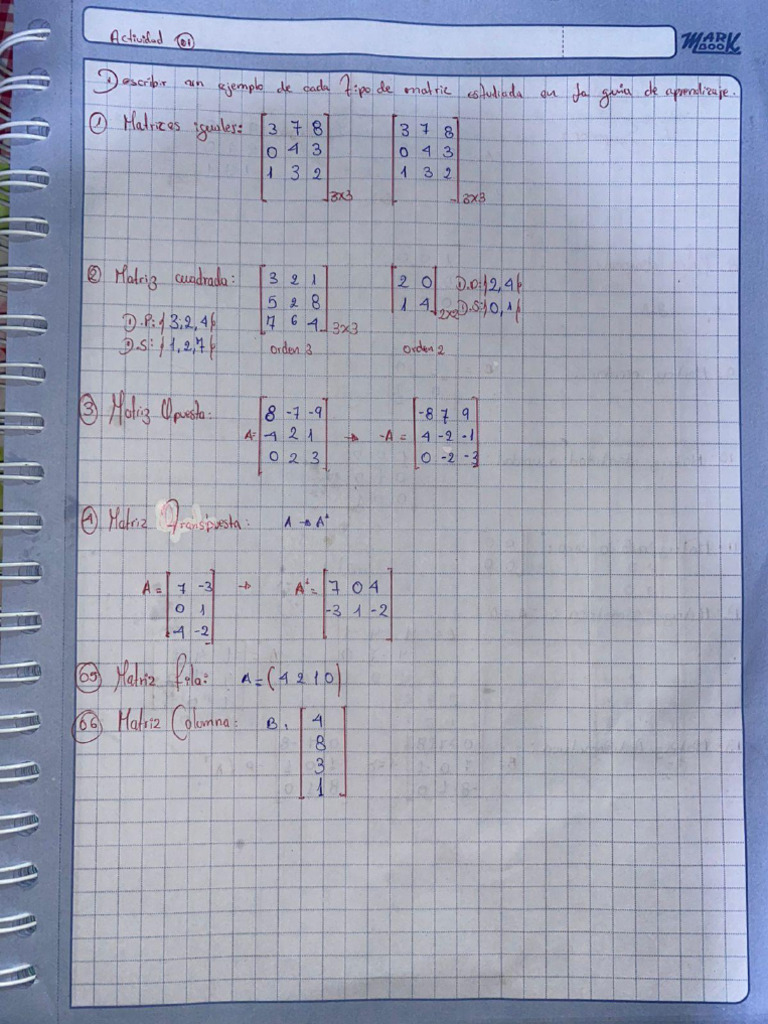 Actividad 01
MARK BOOK
Describir un ejemplo de cada tipo de matriz estudiada en la guía de aprendizaje.
① Matrices iguales: [3 7 8 [3 7 8
0 4 3 0 4 3
1 3 2 1 3 2
]3x3 ]3x3
② Matriz cuadrada: [3 2 1 [2 0 D.P:{2,4}
5 2 8 1 4]2x2 D.S:{0,1}
D.P:{3,2,4} 7 6 4]3x3
D.S:{1,2,7} orden 3 orden 2
③ Matriz Opuesta: [8 -7 -9 [-8 7 9
A= -4 2 1 → -A = 4 -2 -1
0 2 3] 0 -2 -3]
④ Matriz Transpuesta: A → Aᵗ
A = [7 -3 → Aᵗ = [7 0 4
0 1 -3 1 -2]
-4 -2]
05 Matriz fila: A = (4 2 1 0)
06 Matriz Columna: B = [4
8
3
1]